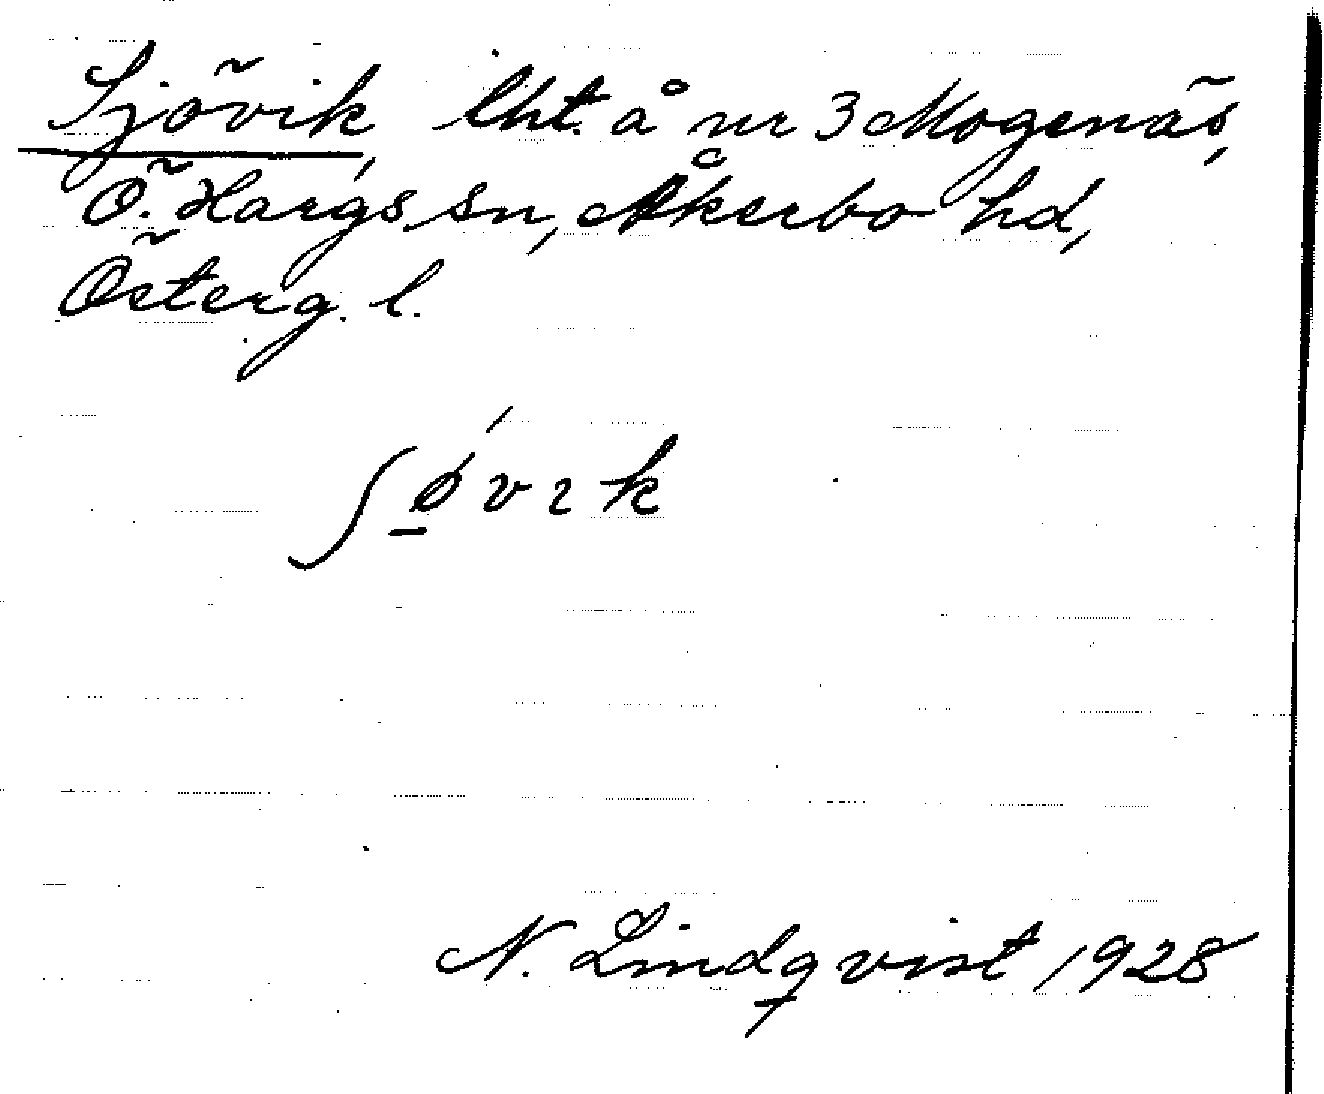 Sjövik, lht. å nr 3 Mogenäs,
Ö. Hargs sn, Åkerbo hd,
Österg. l.
ʃǿ̠vɪk
N. Lindqvist 1928